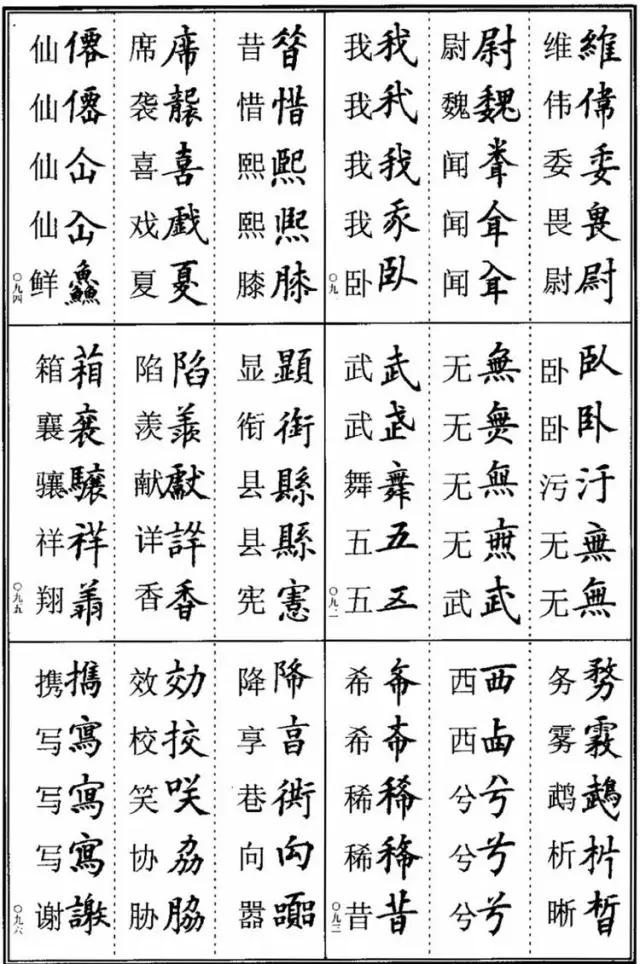 维維
伟偉
委委
畏畏
尉尉
尉尉
魏魏
闻
闻
闻
我我
我我
我我
我
卧臥
〇九一
卧臥
卧卧
污汙
无無
无無
无無
无無
无無
无
武武
武武
武武
舞舞
五五
五五
〇九二
务務
雾霧
鹉鵡
析析
晰晳
西西
西卤
兮兮
兮兮
兮兮
希希
希希
稀稀
稀稀
昔昔
〇九三
昔昝
惜惜
熙熙
熙熙
膝膝
席席
袭襲
喜喜
戏戲
夏夏
仙僊
仙僊
仙仚
仙仚
鲜鱻
〇九四
显顯
衔銜
县縣
县縣
宪憲
陷陷
羡羨
献獻
详詳
香香
箱葙
襄襄
骧驤
祥祥
翔
〇九五
降降
享亯
巷衖
向向
嚣
效効
校挍
笑咲
协劦
胁脇
携攜
写寫
写寫
写寫
谢謝
〇九六